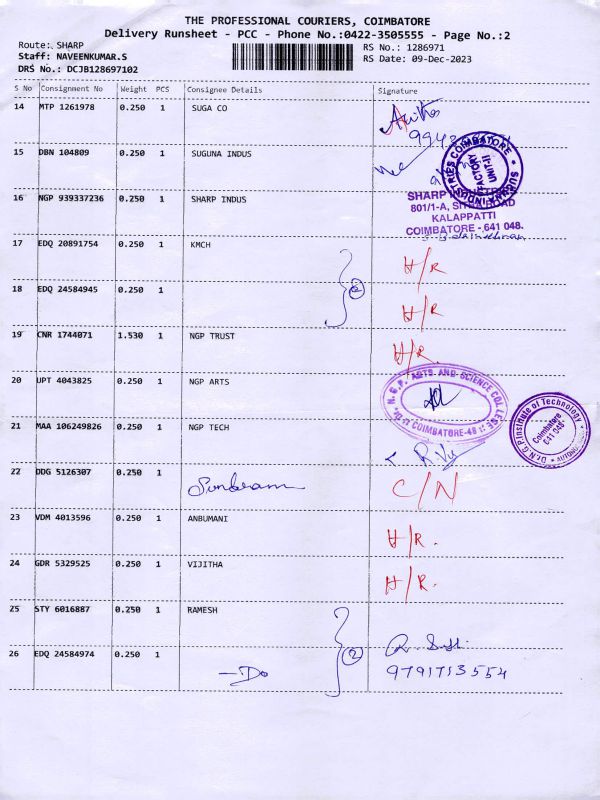 THE PROFESSIONAL COURIERS, COIMBATORE
Delivery Runsheet - PCC - Phone No.:0422-3505555 - Page No.:2
Route: SHARP RS No.: 1286971
Staff: NAVEENKUMAR.S RS Date: 09-Dec-2023
DRS No.: DCJB128697102
S No Consignment No Weight PCS Consignee Details Signature
14 MTP 1261978 0.250 1 SUGA CO
15 DBN 104809 0.250 1 SUGUNA INDUS
SUGUNA INDUSTRIES COIMBATORE
FACTORY
UNIT-II
16 NGP 939337236 0.250 1 SHARP INDUS
801/1-A,
KALAPPATTI
COIMBATORE - 641 048.
17 EDQ 20891754 0.250 1 KMCH H/R
18 EDQ 24584945 0.250 1 2 H/R
19 CNR 1744071 1.530 1 NGP TRUST H/R
20 UPT 4043825 0.250 1 NGP ARTS
DR. N.G.P. ARTS AND SCIENCE COLLEGE
COIMBATORE-48
21 MAA 106249826 0.250 1 NGP TECH
Dr.N.G.P.Institute of Technology
Coimbatore
641 048
22 DDG 5126307 0.250 1 C/N
23 VDM 4013596 0.250 1 ANBUMANI H/R.
24 GDR 5329525 0.250 1 VIJITHA H/R.
25 STY 6016887 0.250 1 RAMESH
26 EDQ 24584974 0.250 1 —Do 2 9791713554